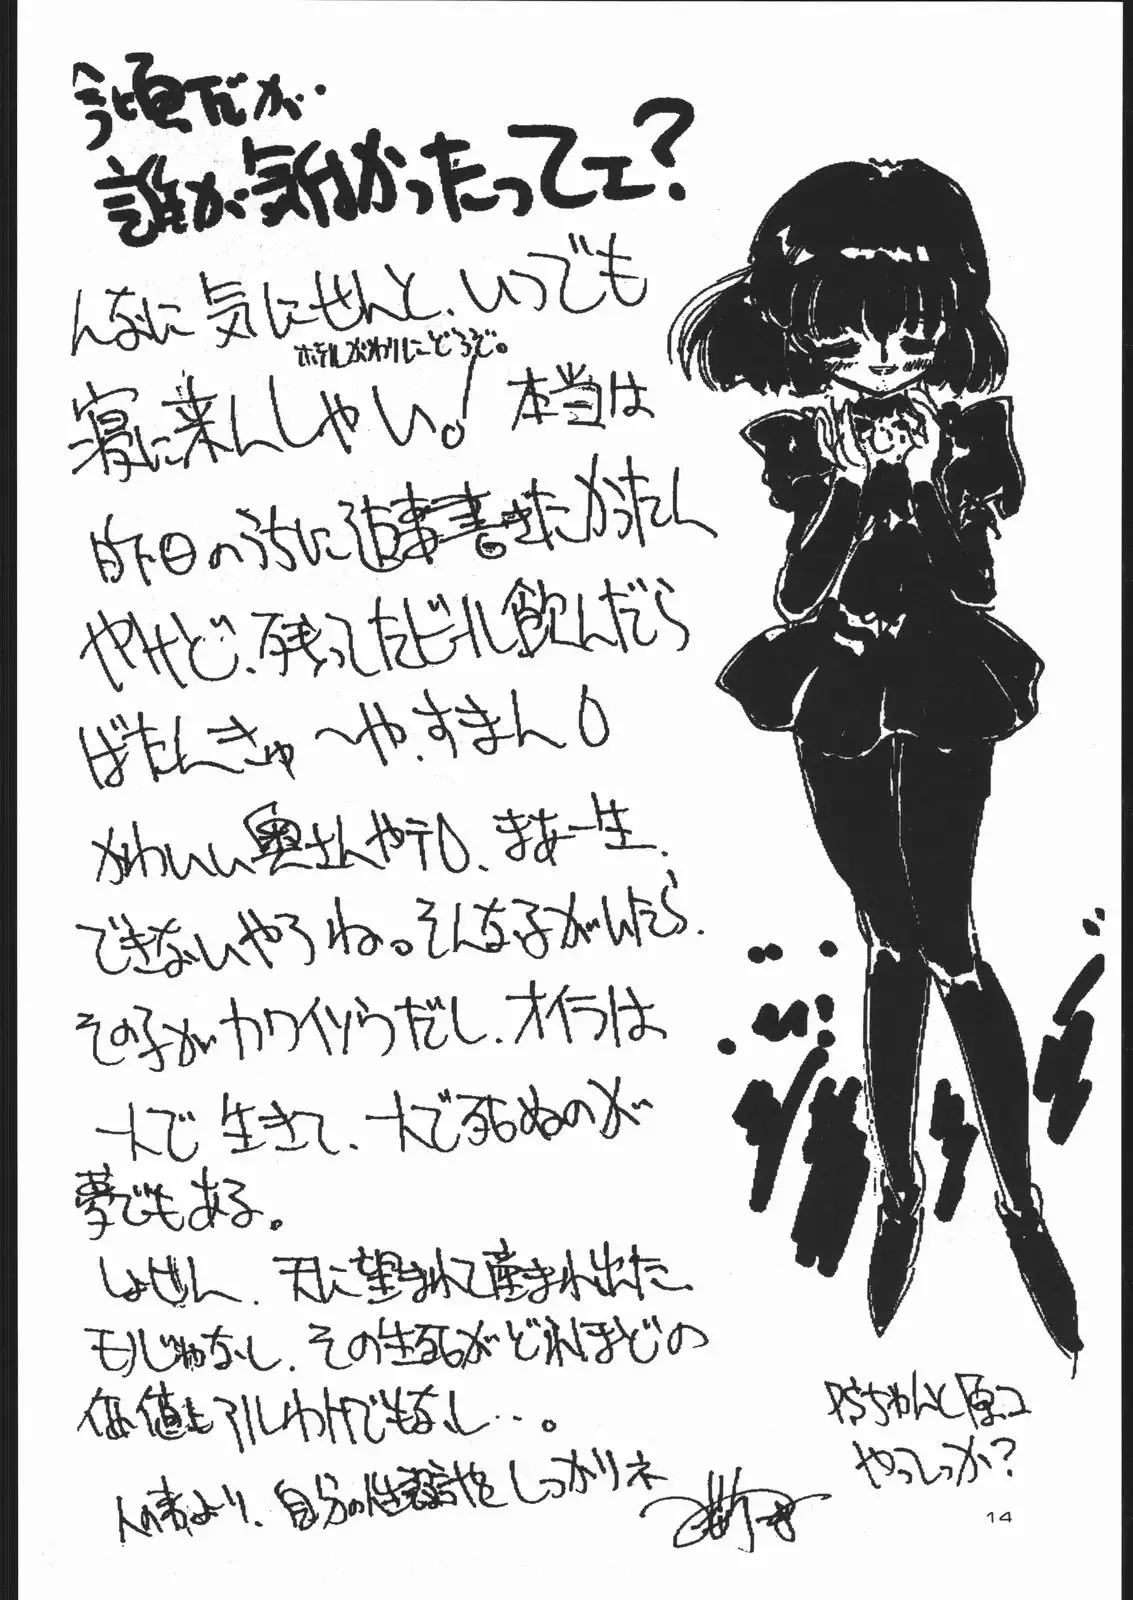 今頃だが・
誰が気付かったってェ?
んなに気にせんと、いつでも
ホテルがわりにどうぞ。
寝に来んしゃい! 本当は
昨日のうちに返事書きたかったん
やけど、残ってたビール飲んだら
ばたんきゅ〜や、すまん
かわいい奥さんやテ、まあ一生、
できないやろね。そんな子がいたら、
その子がカワイソウだし、オイラは
一人で生きて、一人で死ぬのが
夢でもある。
しょせん、天に望まれて産まれ出た
モノじゃなし、その生死がどれほどの
価値もアルわけでもなし…。
人の事より、自分の しっかりネ
ちゃんと原コ
やってっか?
14